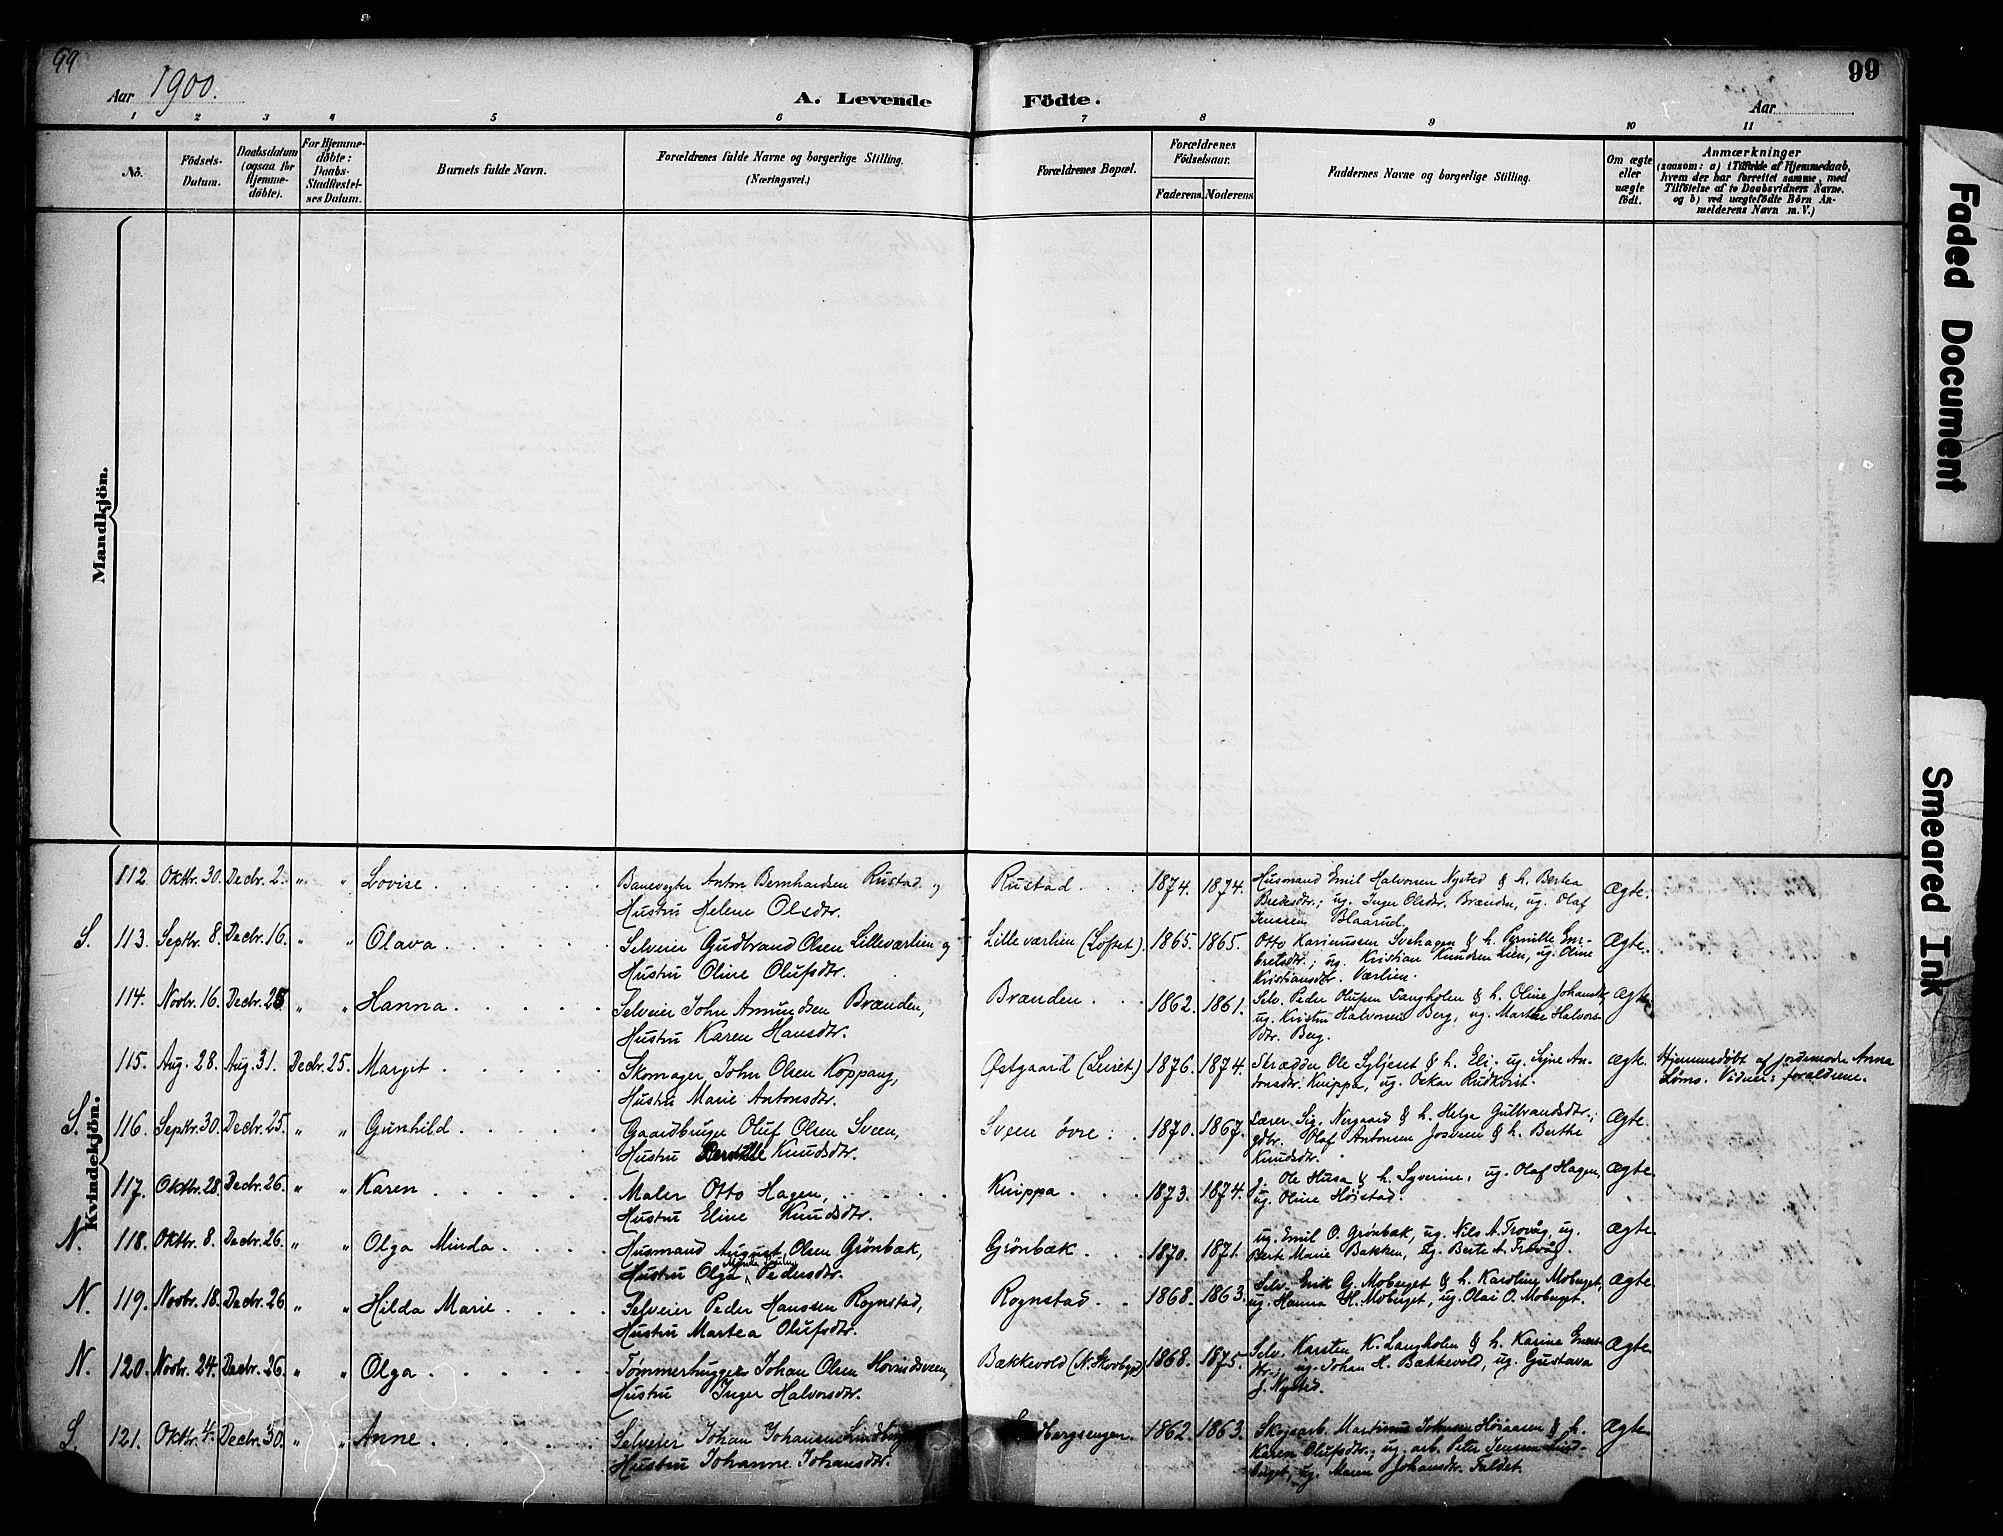 99
Aar 1900.
A. Levende Födte.
99
Aar
1 2 3 4 5 6 7 8 9 10 11
No.
Födsels-Datum.
Daabsdatum (ogsaa for Hjemme-döbte).
For Hjemme-döbte: Daabs-Stadfæstel-ses Datum.
Barnets fulde Navn.
Forældrenes fulde Navne og borgerlige Stilling.
(Næringsvei.)
Forældrenes Bopæl.
Forældrenes Födselsaar.
Faderens. Moderens.
Faddernes Navne og borgerlige Stilling.
Om ægte eller uægte födt.
Anmærkninger
(saasom: a) i Tilfælde af Hjemmedaab,
hvem der har forrettet samme, med
Tilföielse af to Daabsvidners Navne,
og b) ved uægtefödte Börn An-
melderens Navn m. V.)
Mandkjön.
Kvindekjön.
112 Oktbr. 30. Decbr. 2. " " Lovise. Banevogter Anton Bernhardsen Rustad og Rustad. 1874. 1874. Husmand Emil Halvorsen Nysted & h. Berthea Ægte.
Hustru Helene Olsdtr. Bredesdtr.; ug. Inger Olsdtr. Brænden, ug. Olaf
Jenssen Blaarud.
S. 113. Septbr. 8. Decbr. 16. " " Olava. Selveier Gudbrand Olsen Lilleværlien og Lilleværlien (Loftet). 1865. 1865. Otto Karinussen Svehagen & h. Pernille Em- Ægte.
Hustru Oline Olufsdtr. bretsdtr.; ug. Kristian Knudsen Lien, ug. Oline
Kristiansdtr. Værlien.
114. Novbr. 16. Decbr. 25 " " Hanna. Selveier John Amundsen Brænden, Brænden. 1862. 1861. Selv. Peder Olufsen Langholen & h. Oline Johansdtr. Ægte
Hustru Karen Hansdtr. ug. Kristin Halvorsen Berg, ug. Marthe Halvors-
dtr. Berg.
115. Aug. 28. Aug. 31. Decbr. 25. Margit. Skomager John Olsen Koppang, Østgaard (Leiret) 1876. 1874. Skrædder Ole Syljeset & h. Eli; ug. Signe An- Ægte. Hjemmedøbt af Jordemoder Anna
Hustru Marie Antonsdtr. tonsdtr. Knippa, ug. Oskar Rudkvist. Løms. Vidner: forældrene.
S. 116. Septbr. 30. Decbr. 25. " " Gunhild. Gaardbruger Oluf Olsen Sveen, Sveen øvre: 1870. 1867. Lærer Sig. Nergaard & h. Helga Gulbrandsdtr.; Ægte
Hustru Pernille Knudsdtr. gdbr. Olaf Antonsen Josveen & h. Berthe
Knudsdtr.
117. Oktbr. 28. Decbr. 26. " " Karen. Maler Otto Hagen, Knippa. 1873. 1874. J. Ole Husa & h. Syverine, ug. Olaf Hagen, Ægte
Hustru Eline Knudsdtr. ug. Oline Høistad.
N. 118. Oktbr. 8. Decbr. 26. " " Olga Minda. Husmand August Olsen Grönbæk, Grönbæk. 1870. 1871. ug. Emil O. Grønbæk, ug. Nils A. Trovåg, ug. Ægte
Hustru Olga Pedersdtr. Berte Marie Bakken, ug. Berte A. Trovåg.
N. 119. Novbr. 18. Decbr. 26 " " Hilda Marie. Selveier Peder Hanssen Rognstad, Rognstad. 1868. 1863. Selv. Erik G. Moberget & h. Karoline Moberget, Ægte
Hustru Martea Olufsdtr. ug. Hanna H. Moberget, ug. Olai O. Moberget.
N. 120. Novbr. 24. Decbr. 26. " " Olga. Tømmerhugger Johan Olsen Hovindsveen, Bækkevold (N. Skovbyg) 1868. 1875. Selv. Karsten K. Langholen & h. Karine Enars- Ægte
Hustru Inger Halvorsdtr. dtr., ug. Johan H. Bækkevold, ug. Gustava
J. Nysted.
S. 121. Oktbr. 4. Decbr. 30. " " Anne. Selveier Johan Johansen Lindberg bergsengen. 1862. 1863. Skogsarb. Martinus Johnsen Høiaasen & h. Ægte
Hustru Johanne Johansdtr. Karen Olufsdtr., ug. arb. Peter Jensen Lind-
berget, ug. Maren Johansdtr. Faldet.
Faded Document
Smeared Ink